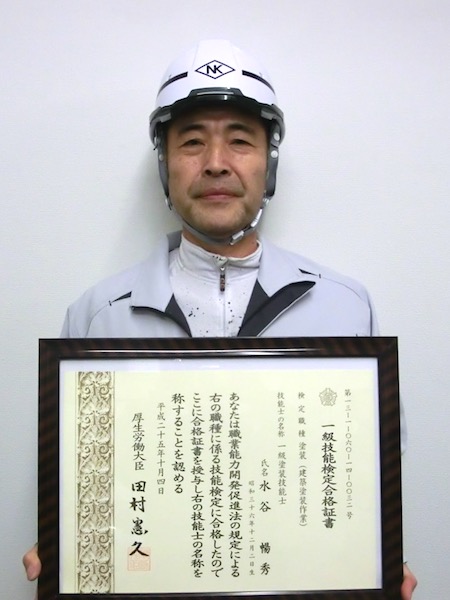 NK
第一三-一-〇六〇-一四-〇〇三二号
一級技能検定合格証書
検定職種 塗装（建築塗装作業）
技能士の名称 一級塗装技能士
氏名 水谷 暢秀
昭和三十六年十二月二日生
あなたは職業能力開発促進法の規定による
右の職種に係る技能検定に合格したので
ここに合格証書を授与し右の技能士の名称を
称することを認める
平成二十五年十月四日
厚生労働大臣 田村憲久